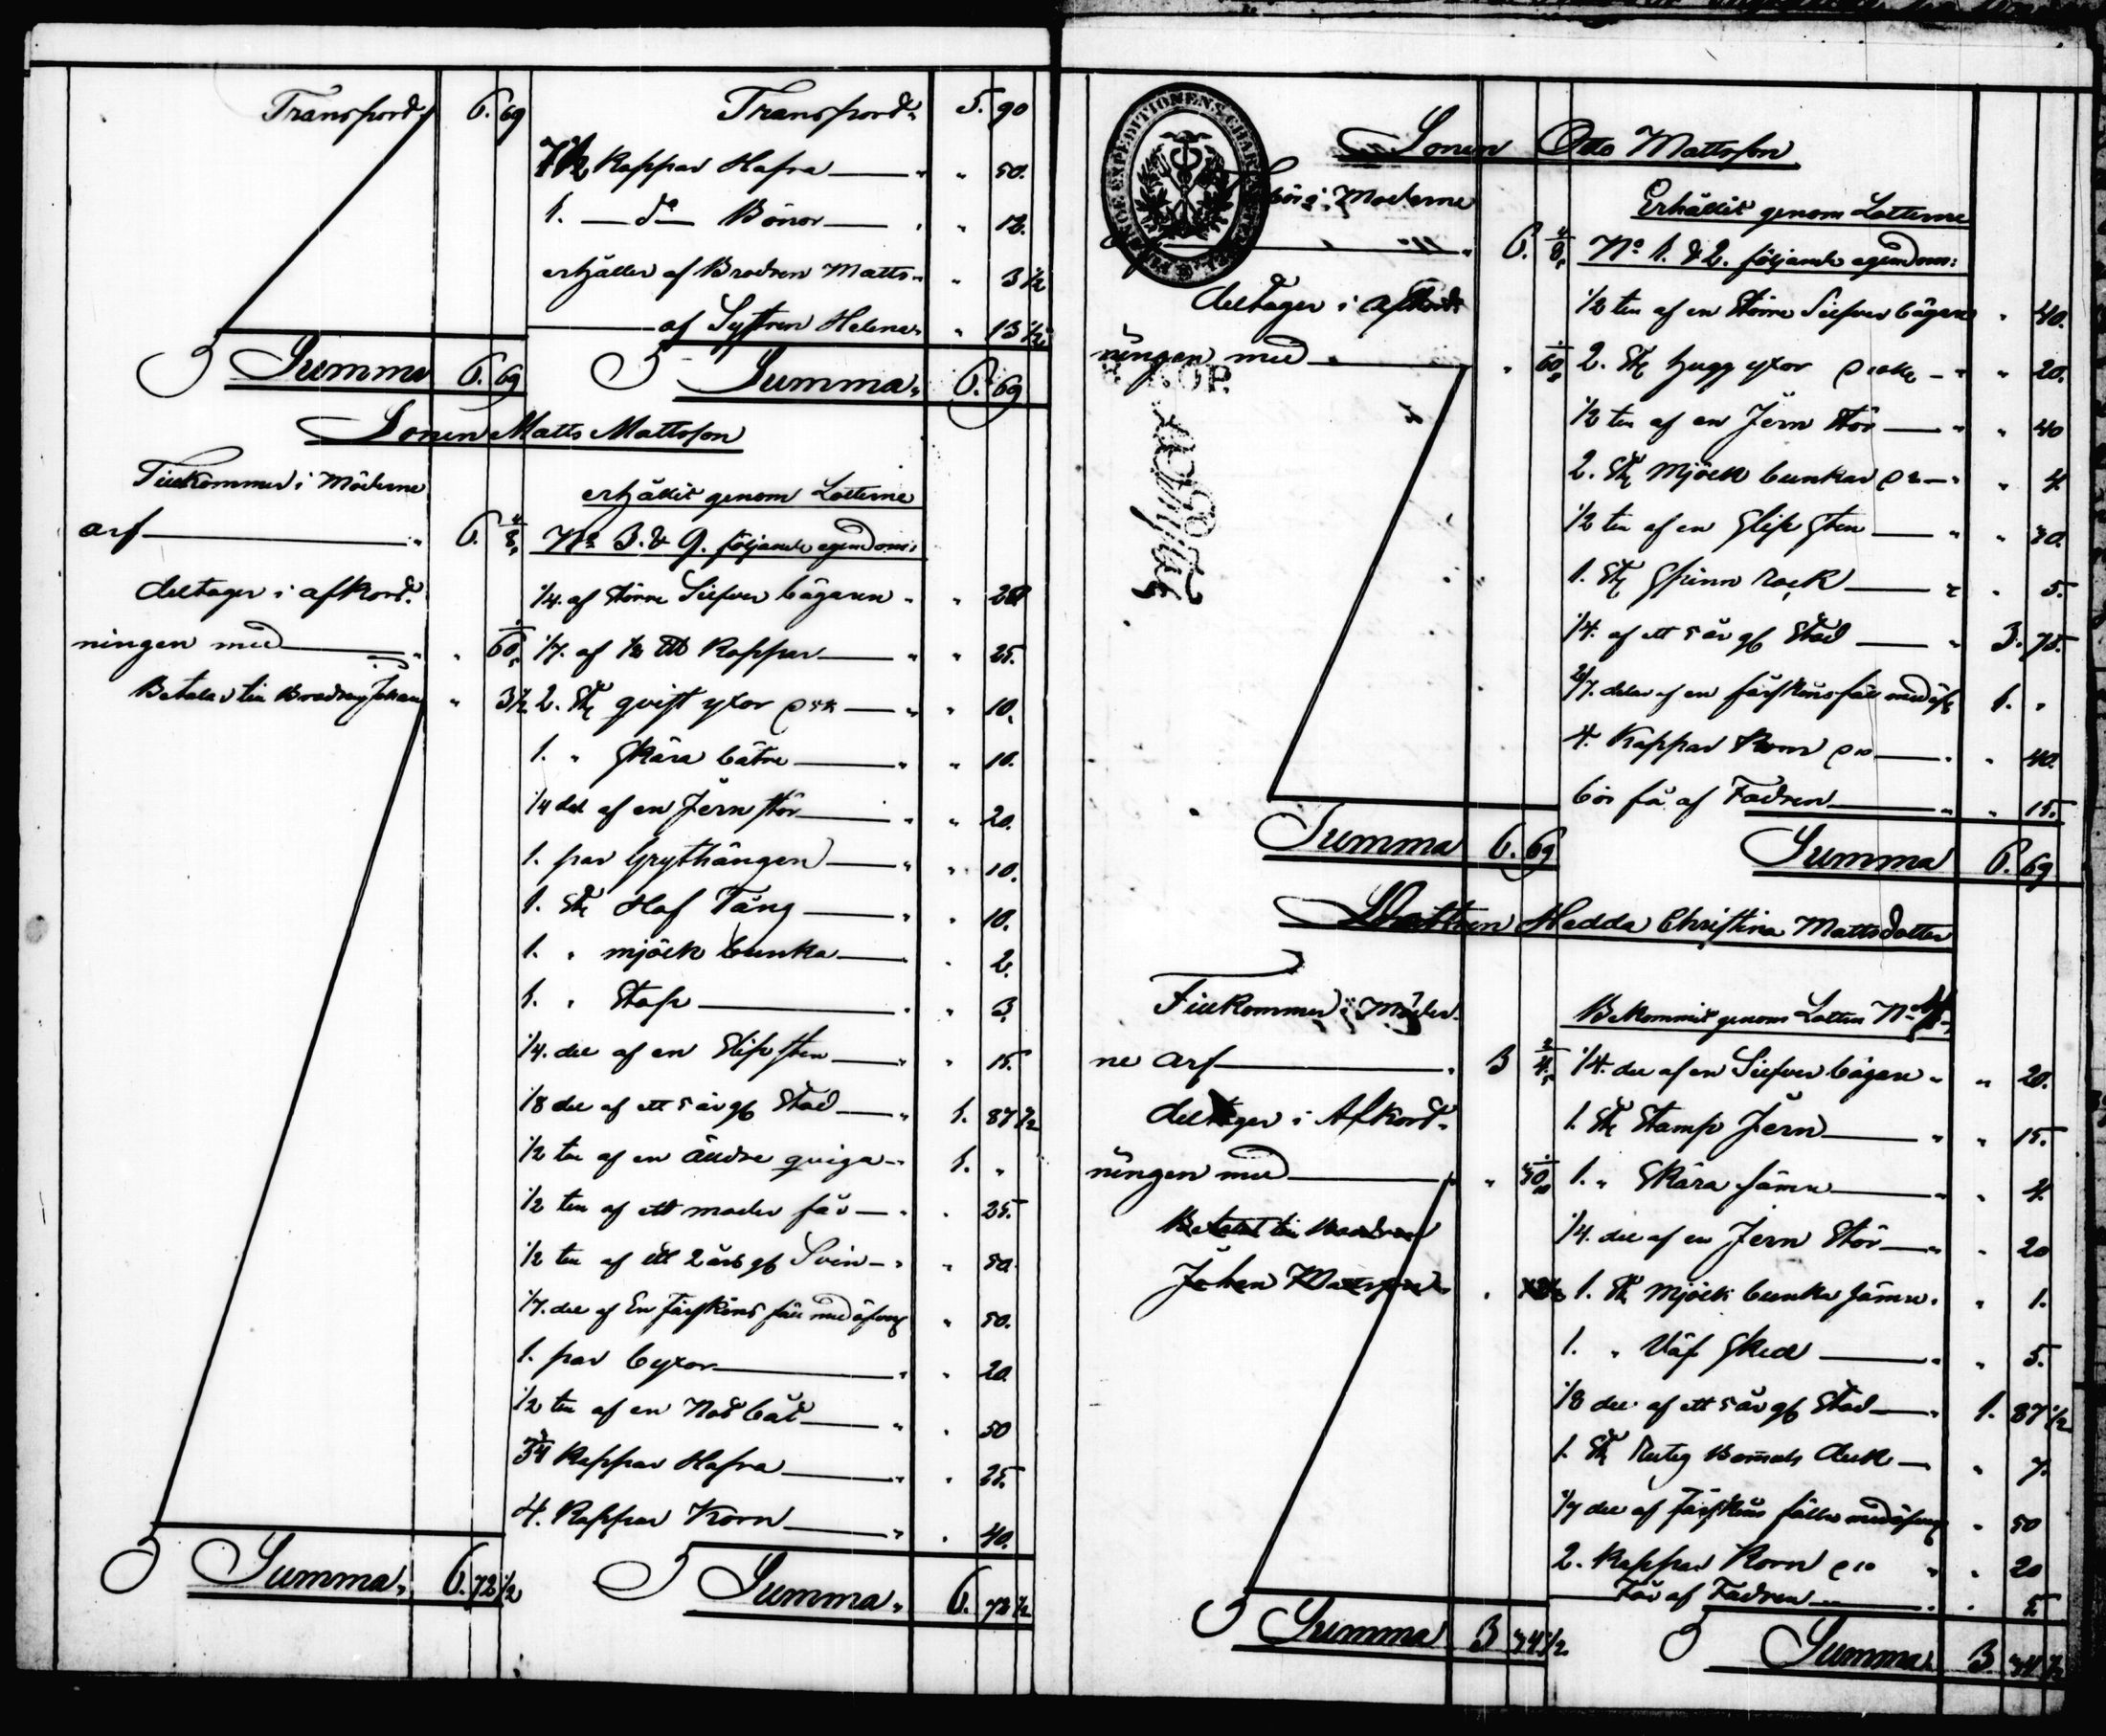 Transport 6. 69
Summa 6. 69
Transport 5. 90
7 1/2 Kappar Hafra " 50.
1. — do — Bönor " 12.
erhåller af Brodren Matts " 3 1/2
af Systren Helena " 13 1/2
Summa 6. 69
Sonen Matts Mattsson
Tillkommer i Möderne
arf 6. 8
deltager i afkort-
ningen med " 60
Betalar till Brodren Johan " 3 1/2
Summa 6. 72 1/2
erhållit genom Lotterne
No 3. & 9. följande egendom:
1/4. af större Silfver bägaren " 20
1/7. af 1/2 Kappar " 25.
2. St. qvist yxor " 10.
1. " Skära bätre " 10.
1/4 del af en Jern stör " 20.
1. par Grythängen " 10.
1. St. Hof Tång " 10.
1. " mjölk bunka " 2.
1. " Stop " 3.
1/4. del af en Slip sten " 15.
1/8 del af ett 5 år gl Stod 1. 87 1/2
1/2 ten af en äldre qviga 1. "
1/2 ten af ett moder får " 25.
1/2 ten af ett 2 års gl Svin " 50.
1/7. del af En fårskins fäll med " 50.
1. par byxor " 20.
1/2 ten af en Not båt " 50
Kappar Hafra " 25.
4. Kappar Korn " 40.
Summa 6. 72 1/2
Sonen Otto Mattsson
i Moderne
6. 8
deltager i afkort-
ningen med " 60
KOP.
Summa 6. 69
Erhållit genom Lotterne
No 1. & 2. följande egendom:
1/2 ten af en större Silfver bägare " 40.
2. St. hugg yxor " 20.
1/2 ten af en Jern Stör " 40
2. St. Mjölk bunkar " 4.
1/2 ten af en Slip Sten " 30.
1. St. Spinn rock " 5.
1/4. af ett 5 år gl Stod 3. 75.
2/7. delar af en fårskinsfäll med 1. "
4. Kappar Korn " 40.
bör få af Fadren " 15.
Summa 6. 69
Dottren Hedda Christina Mattsdotter
Tillkommer i Möder-
ne arf 3 4
deltager i Afkort-
ningen med " 30
Betalat till Brodren
Johan Mattsson
Summa 3 34 1/2
Bekommit genom Lotten No
1/4. del af en Silfver bägare " 20.
1. St. Stamp Jern " 15.
1. " Skära sämre " 4.
1/4. del af en Jern Stör " 20
1. St. Mjölk bunka sämre " 1.
1. " Väf Sked " 5.
1/8 del af ett 5 år gl Stod 1. 87 1/2
1. St. Rutig Bomuls duk " 7.
1/7 del af fårskins fälln med " 50
2. Kappar Korn " 20
Får af Fadren " 5
Summa 3 34 1/2